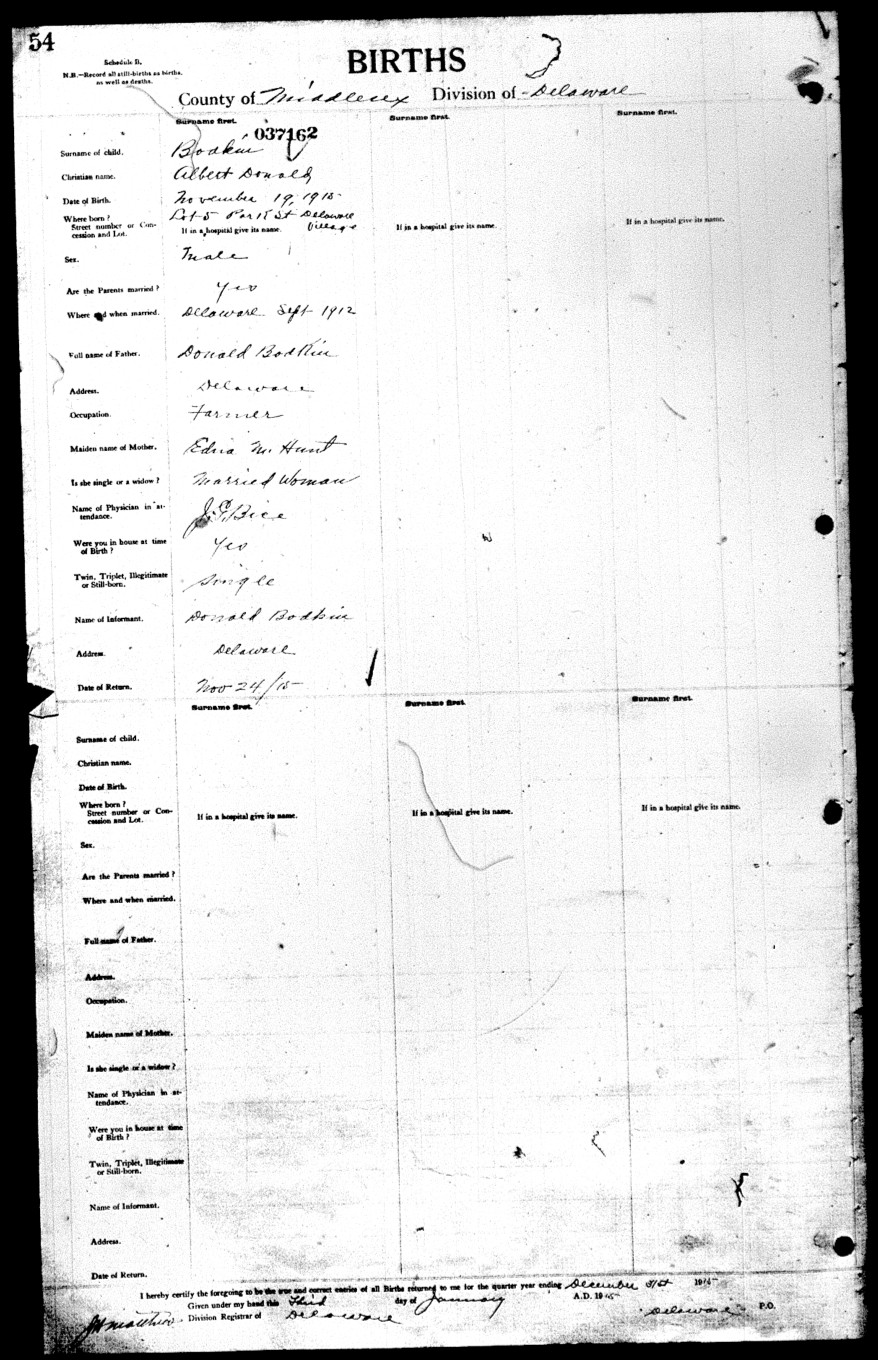 54
Schedule B.
N.B.—Record all still-births as births,
as well as deaths.
BIRTHS
County of Middlesex Division of Delaware
Surname first. Surname first. Surname first.
037162
Surname of child. Bodkin
Christian name. Albert Donald
Date of Birth. November 19, 1915
Where born? Lot 5 St Delaware
Street number or Con- If in a hospital give its name. Village If in a hospital give its name. If in a hospital give its name.
cession and Lot.
Sex. Male
Are the Parents married? Yes
Where and when married. Delaware Sept 1912
Full name of Father. Donald Bodkin
Address. Delaware
Occupation. Farmer
Maiden name of Mother. Edna M. Hunt
Is she single or a widow? Married Woman
Name of Physician in at- J. G. Bice
tendance.
Were you in house at time Yes
of Birth?
Twin, Triplet, Illegitimate Single
or Still-born.
Name of Informant. Donald Bodkin
Address. Delaware
Date of Return. Nov 24/15
Surname first. Surname first. Surname first.
Surname of child.
Christian name.
Date of Birth.
Where born?
Street number or Con- If in a hospital give its name. If in a hospital give its name. If in a hospital give its name.
cession and Lot.
Sex.
Are the Parents married?
Where and when married.
Full name of Father.
Address.
Occupation.
Maiden name of Mother.
Is she single or a widow?
Name of Physician in at-
tendance.
Were you in house at time
of Birth?
Twin, Triplet, Illegitimate
or Still-born.
Name of Informant.
Address.
Date of Return.
I hereby certify the foregoing to be the true and correct entries of all Births returned to me for the quarter year ending December 31st 1915
Given under my hand this Third day of January A.D. 19
Division Registrar of Delaware Delaware P.O.